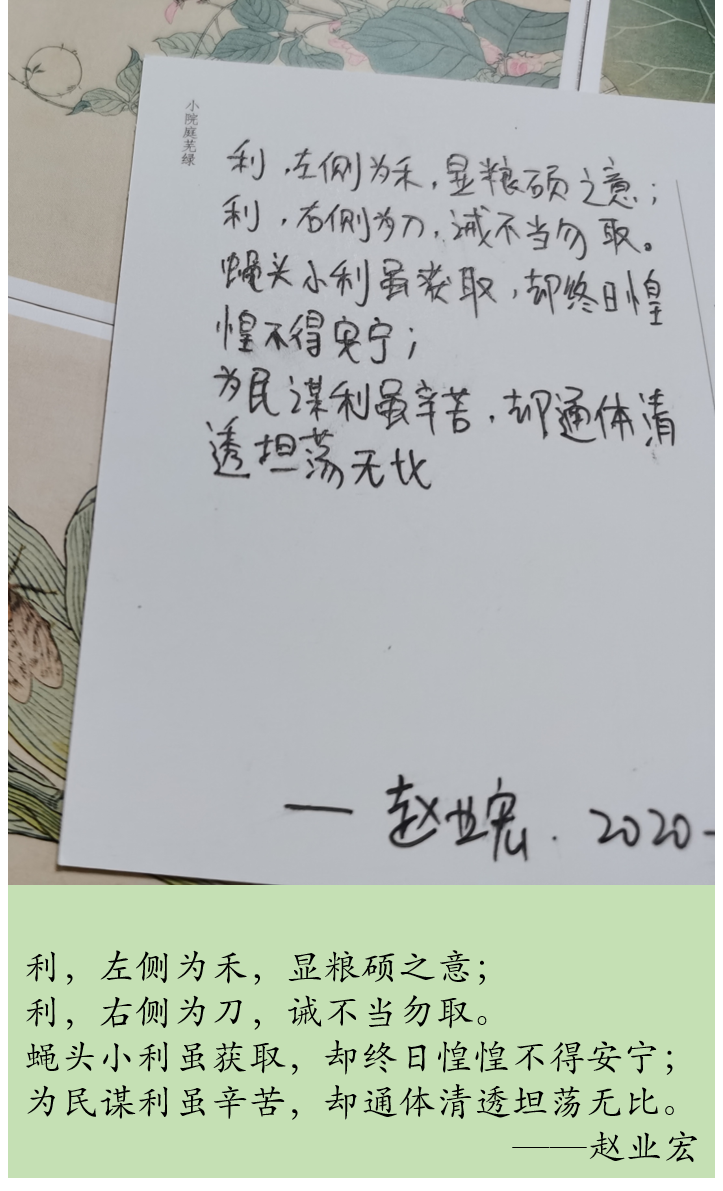 小院庭芜绿
利，左侧为禾，显粮硕之意；
利，右侧为刀，诫不当勿取。
蝇头小利虽获取，却终日惶
惶不得安宁；
为民谋利虽辛苦，却通体清
透坦荡无比
——赵业宏.2020-
利，左侧为禾，显粮硕之意；
利，右侧为刀，诫不当勿取。
蝇头小利虽获取，却终日惶惶不得安宁；
为民谋利虽辛苦，却通体清透坦荡无比。
——赵业宏